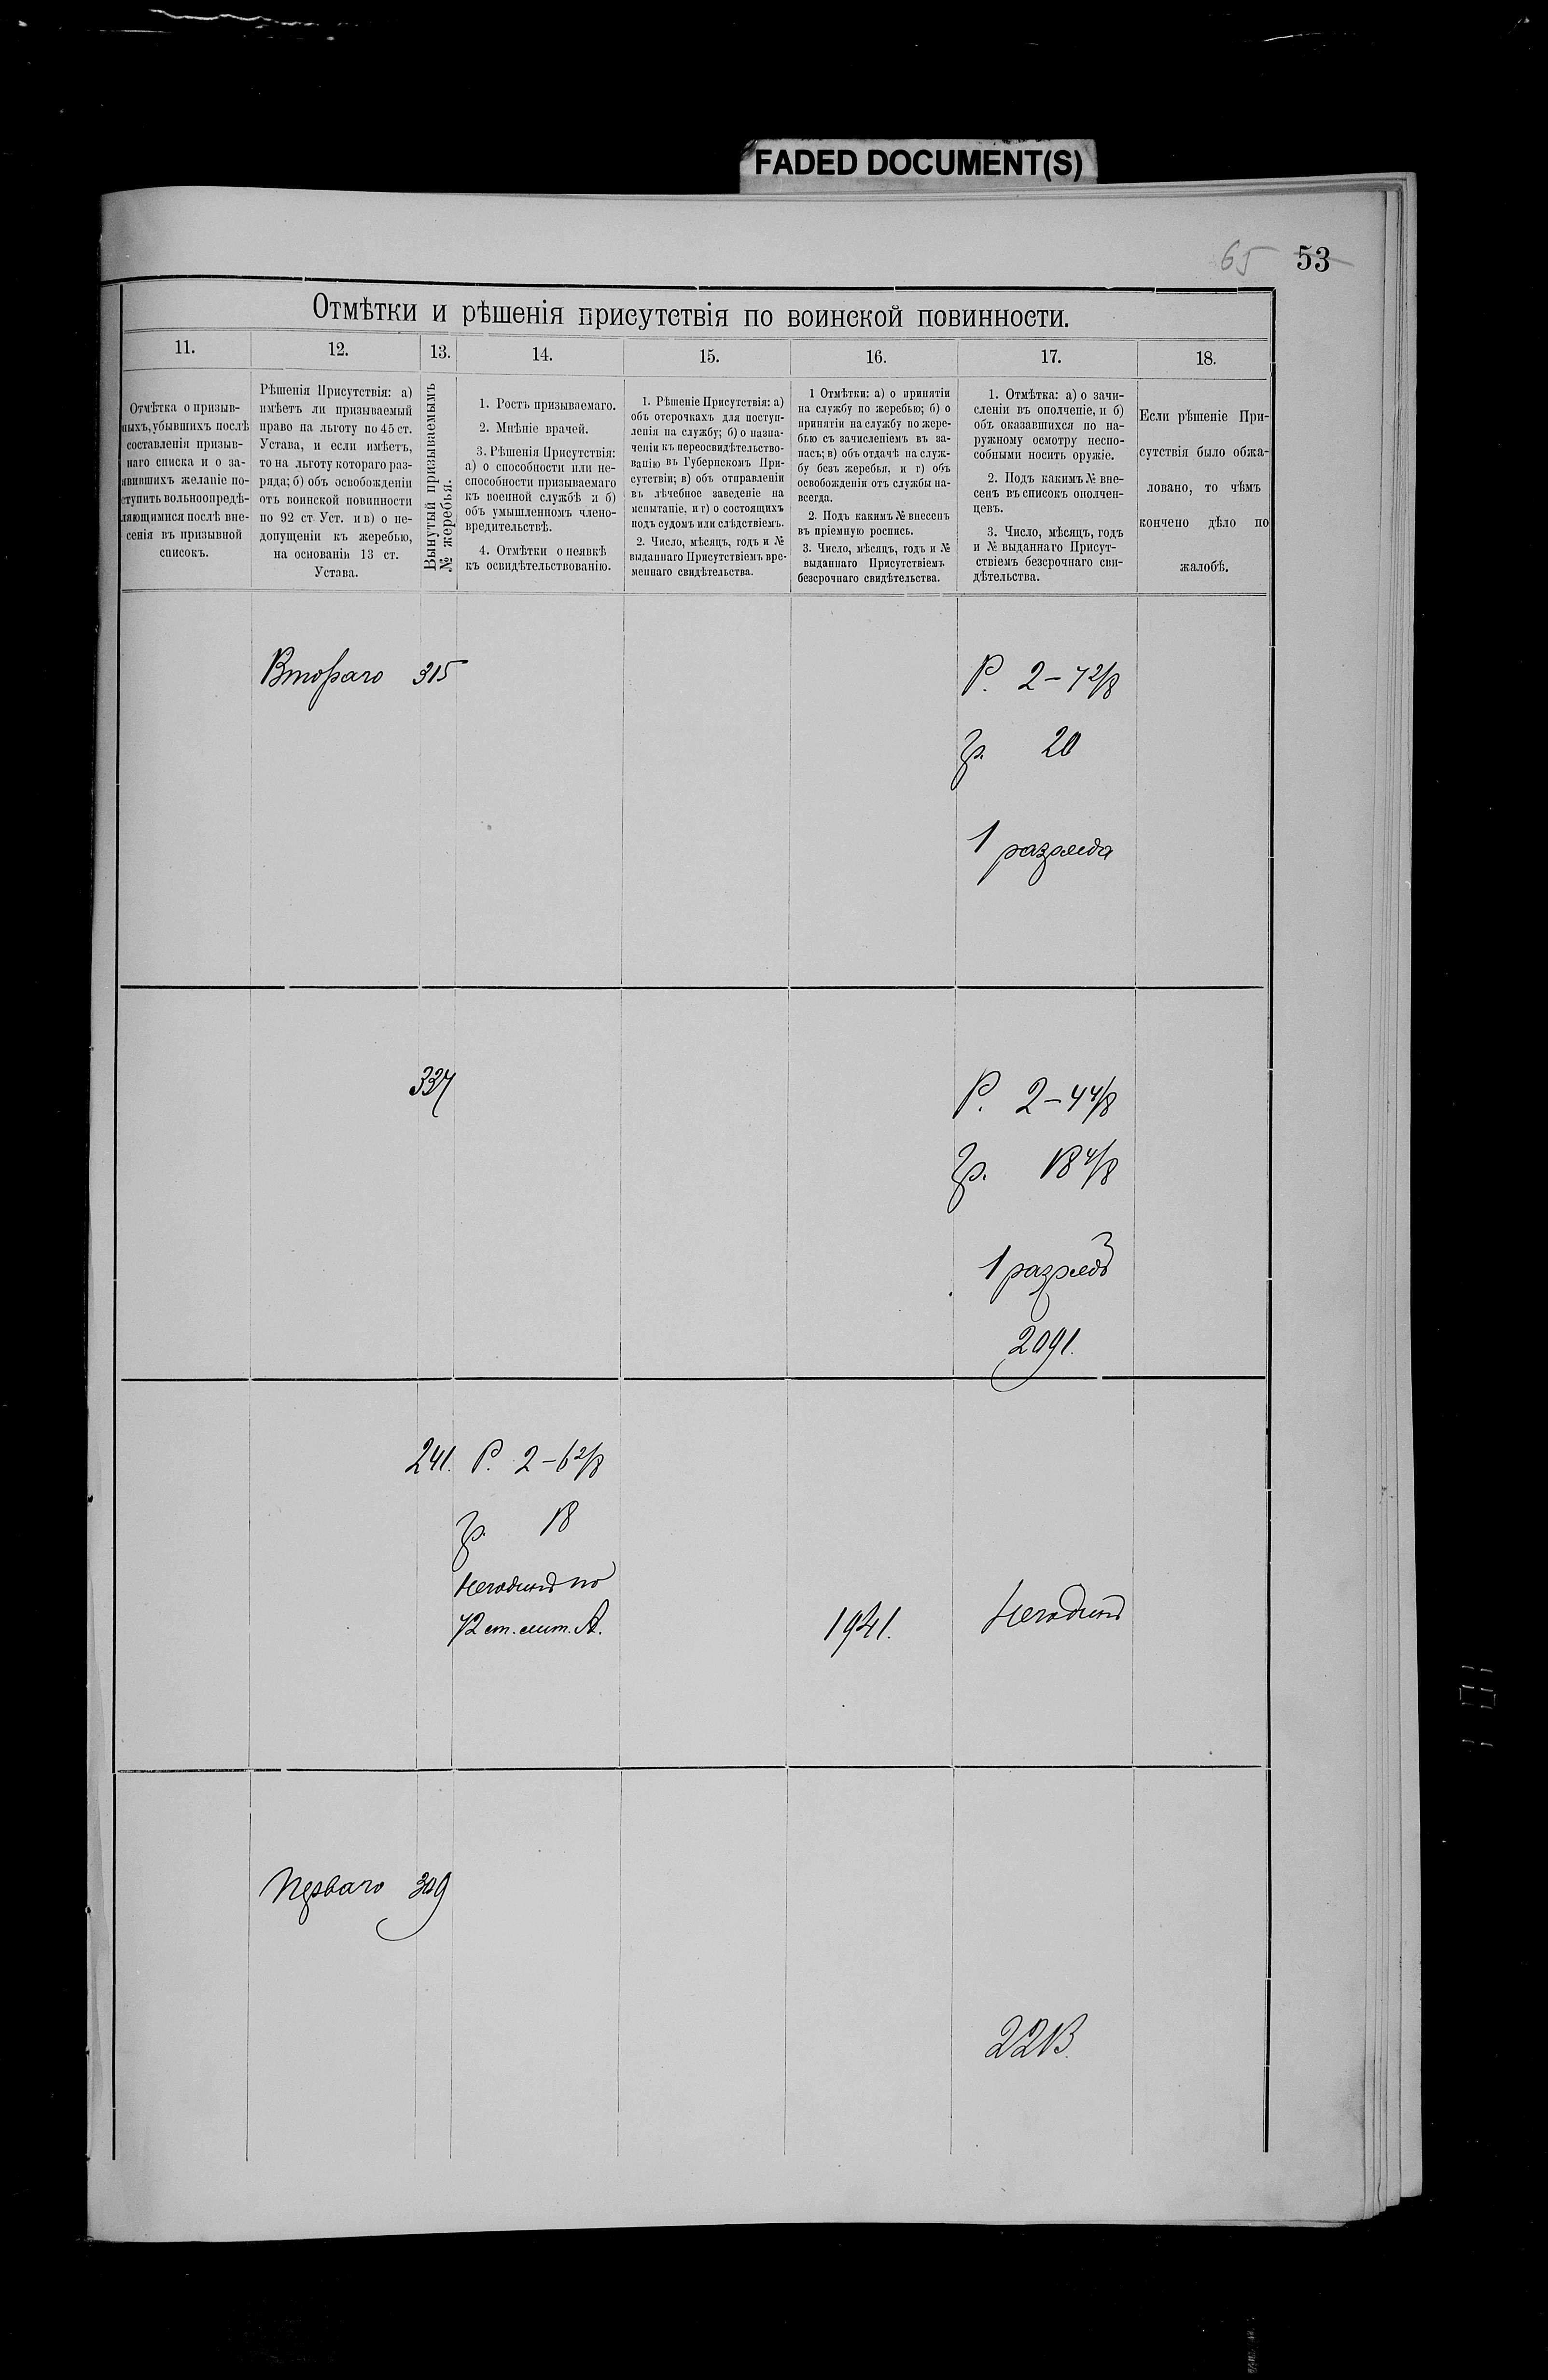 FADED DOCUMENT(S)
65 53
Отмѣтки и рѣшенія присутствія по воинской повинности.
11. 12. 13. 14. 15. 16. 17. 18.
Отмѣтка о призыв-
ныхъ, убывшихъ послѣ
составленія призыв-
наго списка и о за-
явившихъ желаніе по-
ступить вольноопредѣ-
ляющимися послѣ вне-
сенія въ призывной
списокъ.
Рѣшенія Присутствія: а)
имѣетъ ли призываемый
право на льготу по 45 ст.
Устава, и если имѣетъ,
то на льготу котораго раз-
ряда; б) объ освобожденіи
отъ воинской повинности
по 92 ст Уст. и в) о не-
допущеніи къ жеребью,
на основаніи 13 ст.
Устава.
Вынутый призываемымъ
№ жеребья.
1. Ростъ призываемаго.
2. Мнѣніе врачей.
3. Рѣшенія Присутствія:
а) о способности или не-
способности призываемаго
къ военной службѣ и б)
объ умышленномъ члено-
вредительствѣ.
4. Отмѣтки о неявкѣ
къ освидѣтельствованію.
1. Рѣшеніе Присутствія: а)
объ отсрочкахъ для поступ-
ленія на службу; б) о назна-
ченіи къ переосвидѣтельство-
ванію въ Губернскомъ При-
сутствіи; в) объ отправленіи
въ лѣчебное заведеніе на
испытаніе, и г) о состоящихъ
подъ судомъ или слѣдствіемъ.
2. Число, мѣсяцъ, годъ и №
выданнаго Присутствіемъ вре-
меннаго свидѣтельства.
1 Отмѣтки: а) о принятіи
на службу по жеребью; б) о
принятіи на службу по жере-
бью съ зачисленіемъ въ за-
пасъ; в) объ отдачѣ на служ-
бу безъ жеребья, и г) объ
освобожденіи отъ службы на-
всегда.
2. Подъ какимъ № внесенъ
въ пріемную роспись.
3. Число, мѣсяцъ, годъ и №
выданнаго Присутствіемъ
безсрочнаго свидѣтельства.
1. Отмѣтка: а) о зачи-
сленіи въ ополченіе, и б)
объ оказавшихся по на-
ружному осмотру неспо-
собными носить оружіе.
2. Подъ какимъ № вне-
сенъ въ списокъ ополчен-
цевъ.
3. Число, мѣсяцъ, годъ
и № выданнаго Присут-
ствіемъ безсрочнаго сви-
дѣтельства.
Если рѣшеніе При-
сутствія было обжа-
ловано, то чѣмъ
кончено дѣло по
жалобѣ.
Втораго 315 Р. 2–7 2/8
гр. 20
1 разряда
337 Р. 2–4 4/8
гр. 18 4/8
1 разрядъ
2091.
241. Р. 2–6 2/8
гр. 18
Негоденъ по
72 ст. лит. А.
1941. Негоденъ
Перваго 309
2213.